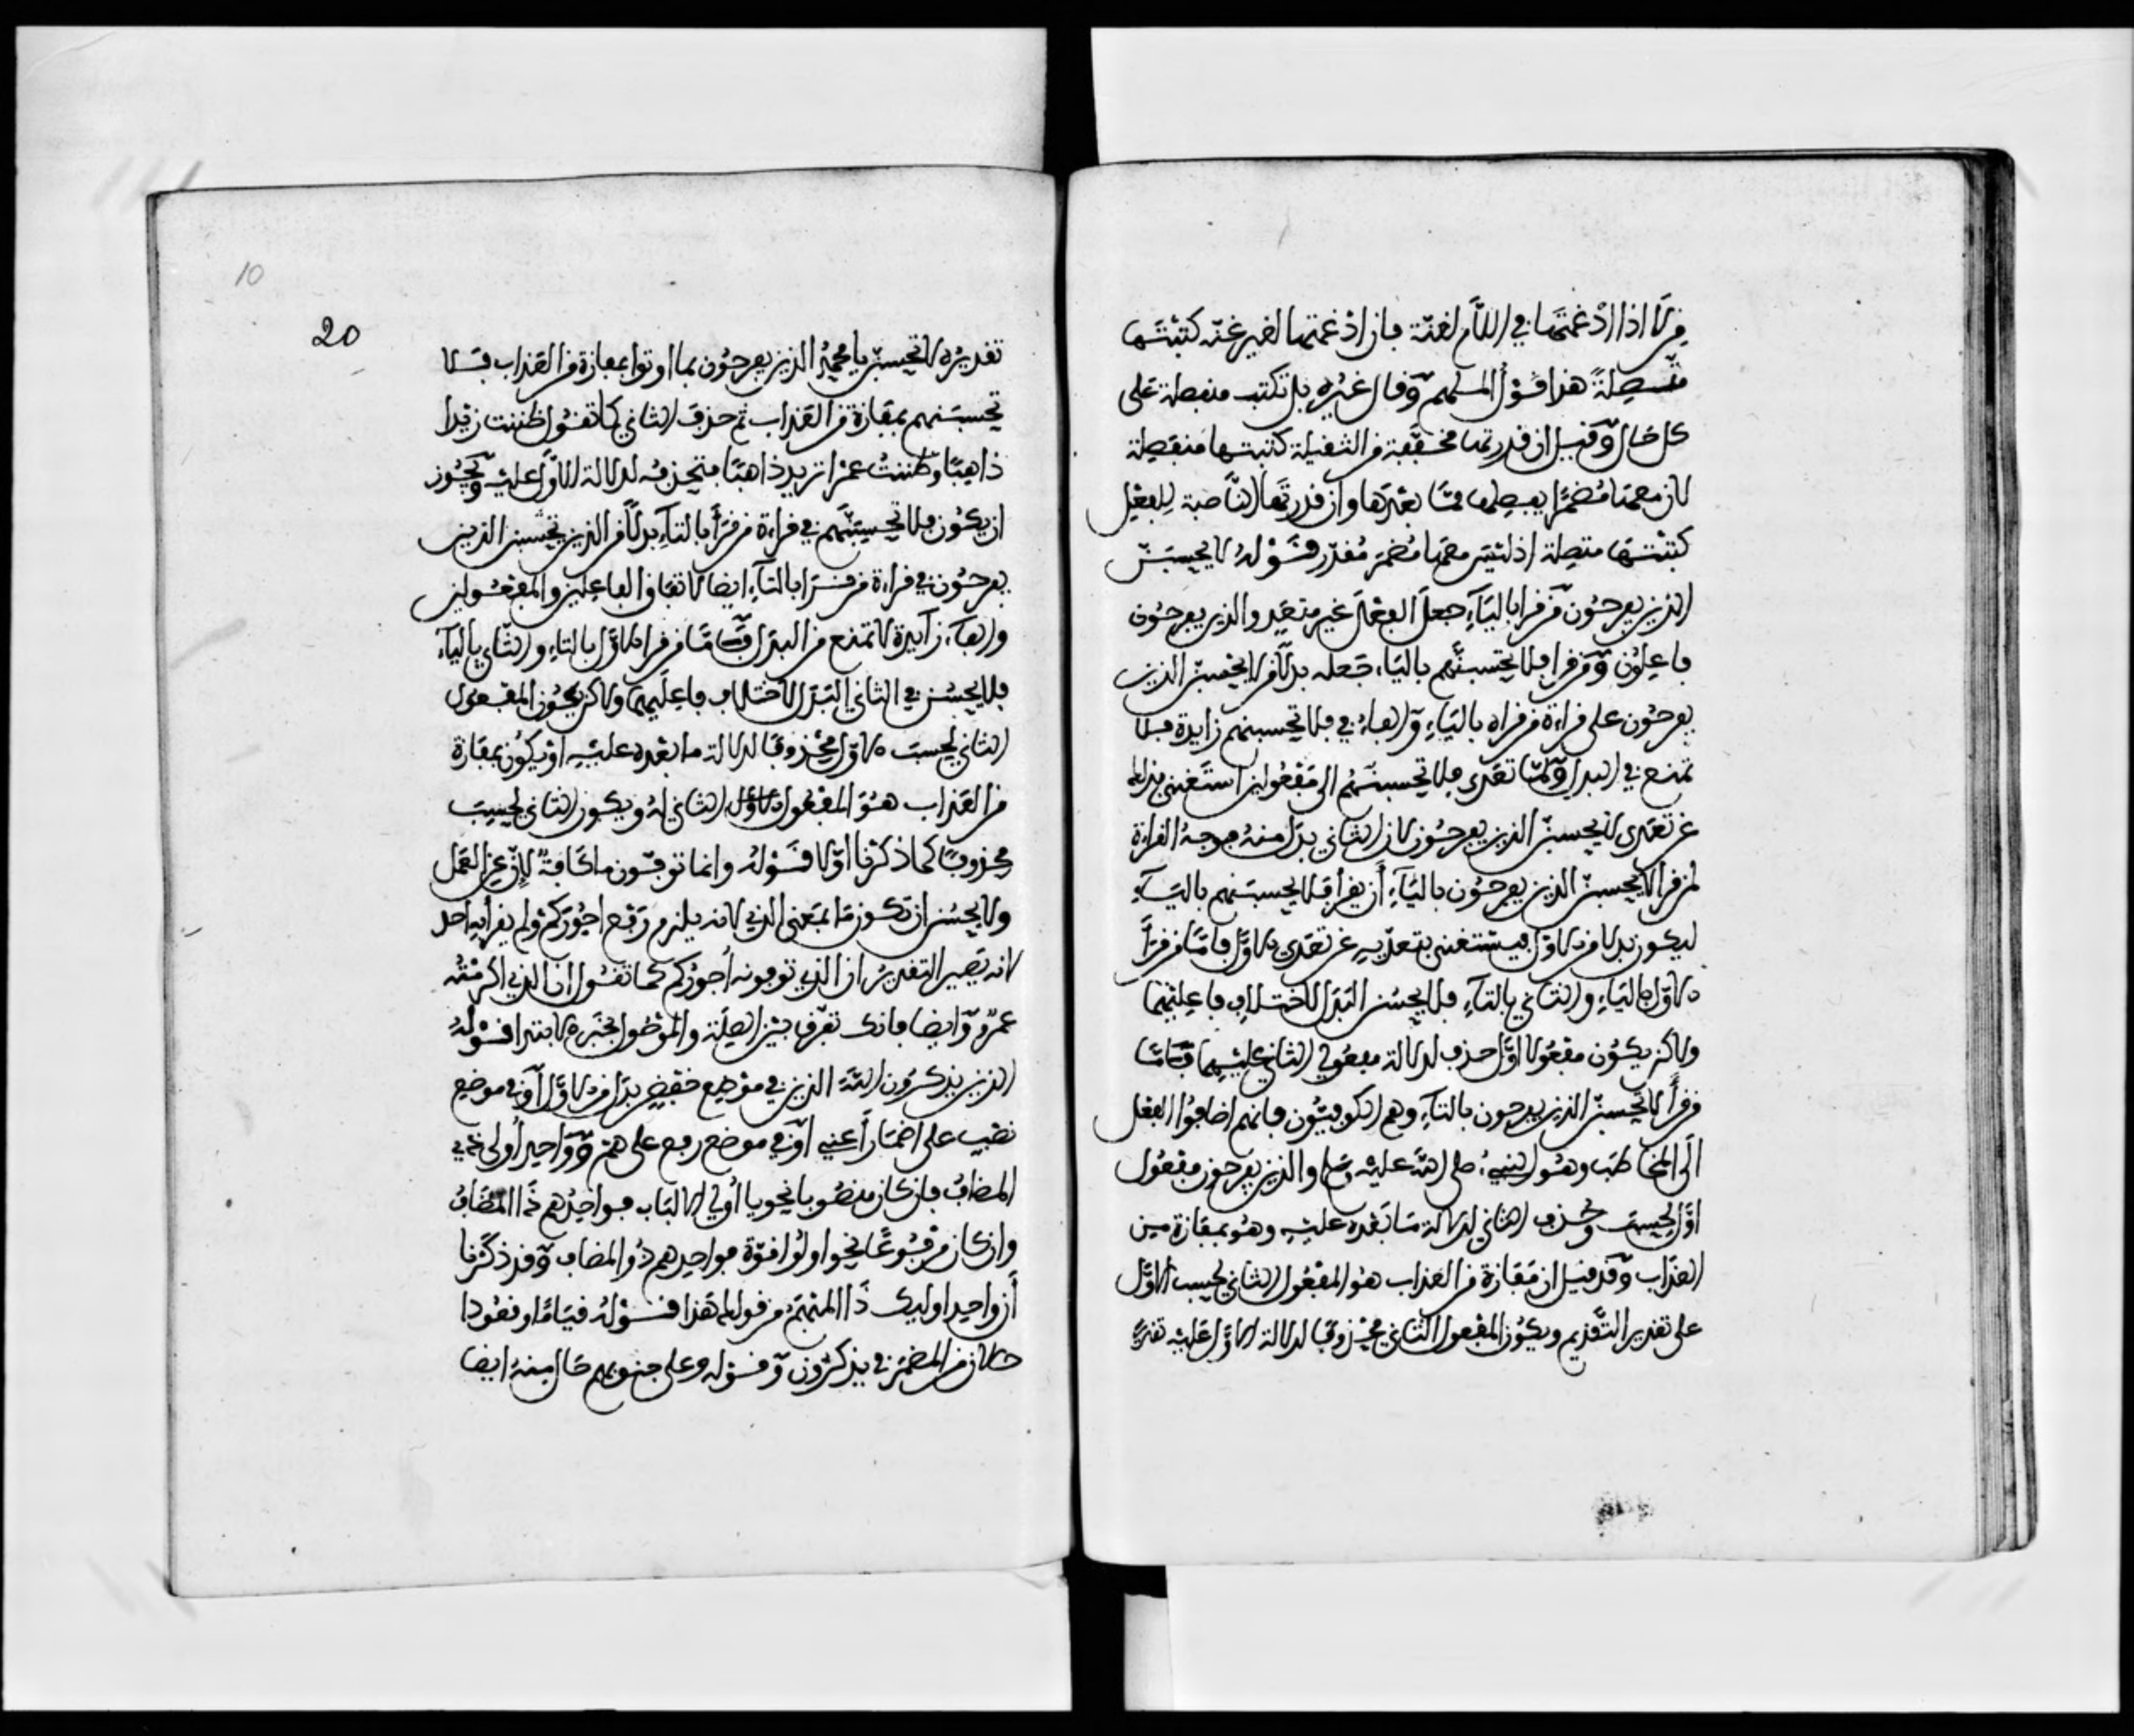 من لا اذا ادغمتها في اللام لغنة فان ادغمتها لغير غنة كتبتها
متصلة هذا قول المهم وقال غيره بل تكتب منفصلة على
كل حال وقيل ان قدرتها مخففة من الثقيلة كتبتها منفصلة
لان معها مضمرا يفصلها مما بعدها وان قدرتها الناصبة للفعل
كتبتها متصلة اذ ليس معها مضمر مقدر قوله لا يحسبن
الذين يفرحون من قرا بالياء جعل الفعل غير متعد والذين يفرحون
فاعلون ومن قرا فلا يحسبنهم بالياء جعله بدلا من لا يحسبن الذين
يفرحون على قراءة من قراه بالياء والفاء في فلا تحسبنهم زايدة فلا
تمنع في البدل ولما تعدى فلا تحسبنهم الى مفعولين استغنى بذلك
عن تعدى لا يحسبن الذين يفرحون لان الثاني بدل منه فوجه القراءة
لمن قرا لا يحسبن الذين يفرحون بالياء أن يقرا فلا يحسبنهم بالياء
ليكون بدلا من الاول فيستغنى بتعديه عن تعدى الاول فاما من قرأ
الاول بالياء والثاني بالتاء فلا يحسن البدل لاختلاف فاعليهما
ولاكن يكون مفعولا اول حذف لدلالة مفعولي الثاني عليهما فاما
من قرأ لا تحسبن الذين يفرحون بالتاء وهم الكوفيون فانهم اضافوا الفعل
الى المخاطب وهو النبيء صلى الله عليه وسلم والذين يفرحون مفعول
اول لحسب وحذف الثاني لدلالة ما بعده عليه وهو بمفازة من
العذاب وقد قيل ان مفازة من العذاب هو المفعول الثاني لحسب الاول
على تقدير التقديم ويكون المفعول الثاني محذوفا لدلالة الاول عليه تقديره
10
20
تقديره لا تحسبن يا محمد الذين يفرحون بما اوتوا بمفازة من العذاب فلا
تحسبنهم بمفازة من العذاب ثم حذف الثاني كما تقول ظننت زيدا
ذاهبا وظننت عمرا تريد ذاهبا فتحذفه لدلالة الاول عليه ويجوز
ان يكون فلا تحسبنهم في قراءة من قرأ بالتاء بدلا من الذين تحسبن الذين
يفرحون في قراءة من قرا بالتاء ايضا لاتفاق الفاعلين والمفعولين
والفاء زايدة لا تمنع من البدل فاما من قرا الاول بالتاء والثاني بالياء
فلا يحسن في الثاني البدل لاختلاف فاعليهما ولاكن يكون المفعول
الثاني لحسب الاول محذوفا لدلالة ما بعده عليه او يكون بمفازة
من العذاب هو المفعول الثاني له ويكون الثاني لحسب
محذوفا كما ذكرنا اولا قوله وانما توفون ما كافة لإن عن العمل
ولا يحسن ان تكون ما بمعنى الذي لانه يلزم رفع اجوركم ولم يقرأ به احد
لانه يصير التقدير ان الذي توفونه أجوركم كما تقول ان الذي اكرمته
عمرو وايضا فانك تفرق بين الصلة والموصول بخبر الابتدا قوله
الذين يذكرون الله الذين في موضع خفض بدل من الاول أو في موضع
نصب على اضمار أعني او في موضع رفع على هم وواحد أولى ذي
المضاف فان كان منصوبا نحو يا أولي الالباب فواحدهم ذا المضاف
وان كان مرفوعا نحو اولوا قوة فواحدهم ذو المضاف وقد ذكرنا
أن واحد اوليك ذا المبهم من قولك هذا قوله قياما وقعودا
حالان من المضمر في يذكرون وقوله وعلى جنوبهم حال منه ايضا